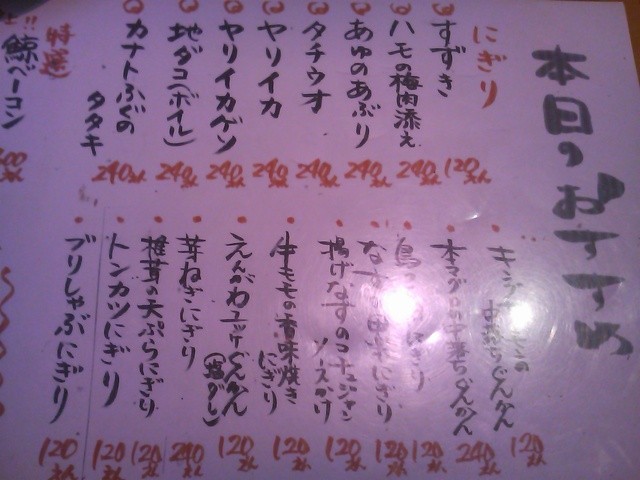 本日のおすすめ
にぎり
すずき 120えん
ハモの梅肉添え 240えん
あゆのあぶり 240えん
タチウオ 240えん
ヤリイカ 240えん
ヤリイカゲソ 240えん
地ダコ(ボイル) 240えん
カナトふぐの
タタキ 240えん
特選!!
鯨ベーコン
ぐんかん 120えん
本マグロの中落ちぐんかん 240えん
にぎり 120えん
にぎり 120えん
揚げなすのコチュジャン
ソースかけ 120えん
牛モモの香味焼き
にぎり 120えん
えんがわユッケぐんかん
(塩ダレ) 120えん
芽ねぎにぎり 240えん
椎茸の天ぷらにぎり 120えん
トンカツにぎり 120えん
ブリしゃぶにぎり 120えん